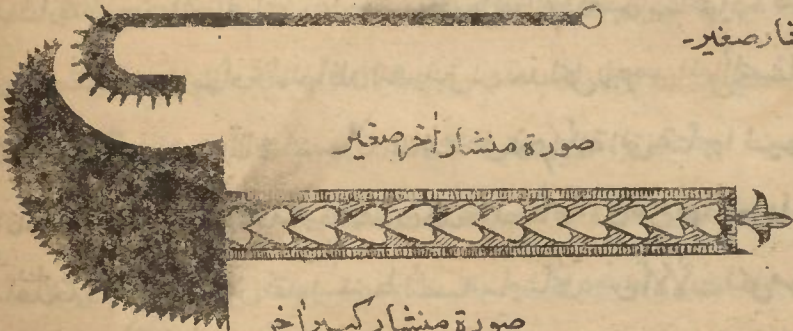 صغير-
صورة منشار أخر صغير
صورة منشار كبير أخر